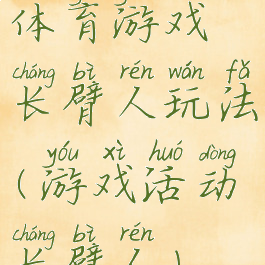 体育游戏
cháng bì rén wán fǎ
长臂人玩法
yóu xì huó dòng
(游戏活动
cháng bì rén
长臂人)